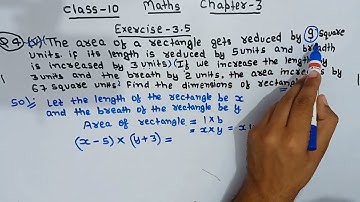 Class-10 Maths Chapter-3
Exercise-3.5
Q4 (v) (The area of a rectangle gets reduced by 9 square
units. if its length is reduced by 5 units and breadth
is increased by 3 units) (If we increase the length by
3 units and the breath by 2 units, the area increases by
67 square units. Find the dimensions of rectangle
Sol: Let the length of the rectangle be x
and the breath of the rectangle be y
Area of rectangle = l × b
= x × y = x
(x - 5) × (y + 3) =